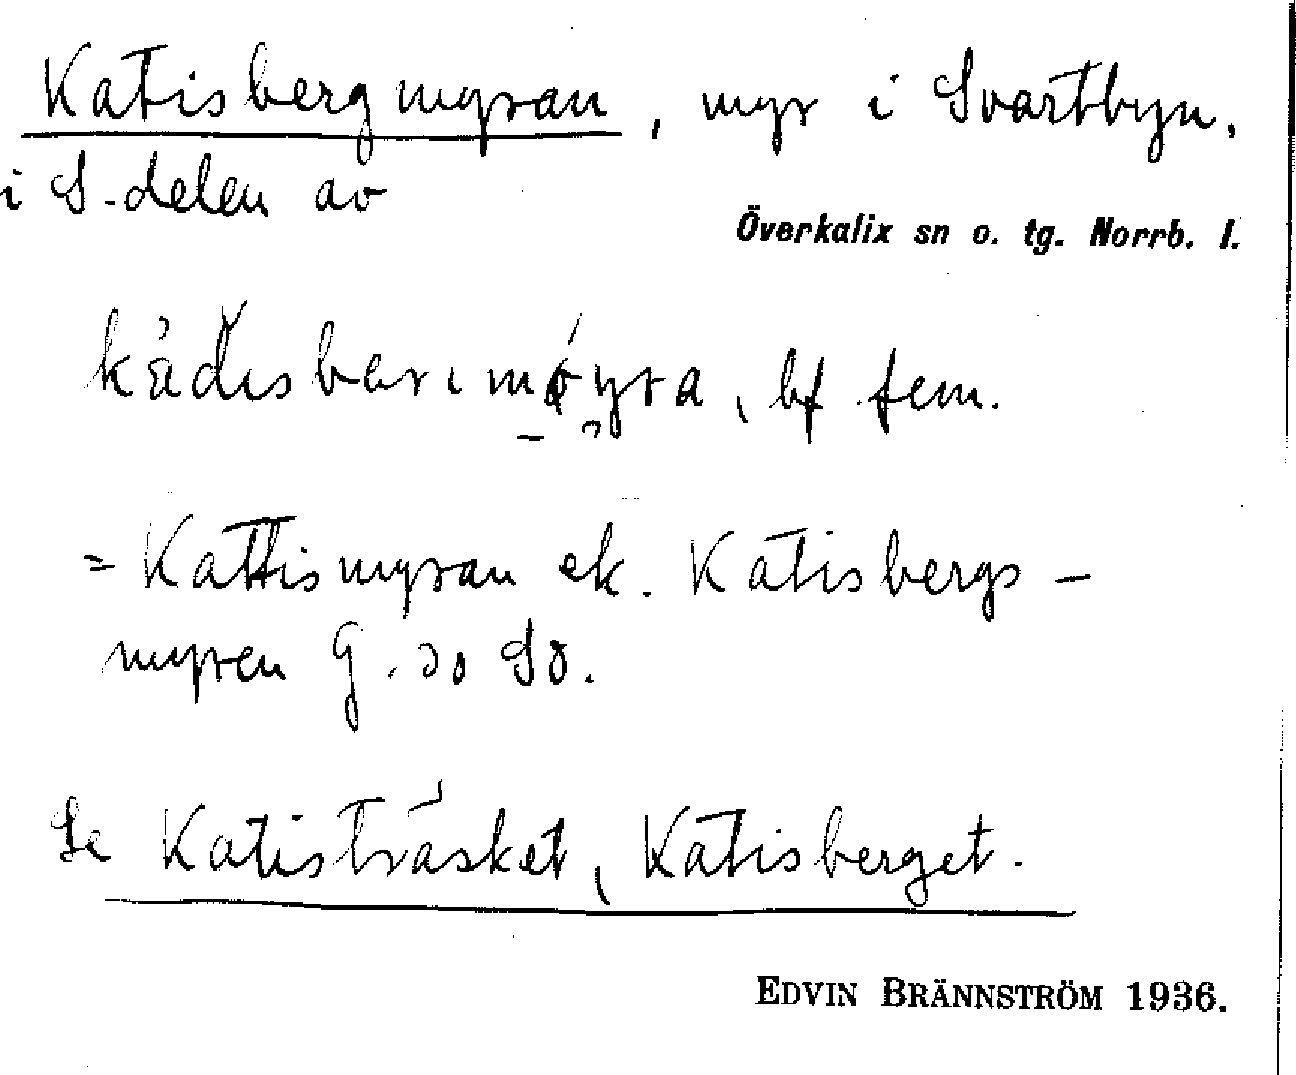 Katisbergmyran, myr i Svartbyn,
i S-delen av
Överkalix sn o. tg. Norrb. l.
bf fem.
= Kattismyran ek. Katisbergs-
myren G. 30 S8.
Se Katisträsket, Katisberget.
EDVIN BRÄNNSTRÖM 1936.